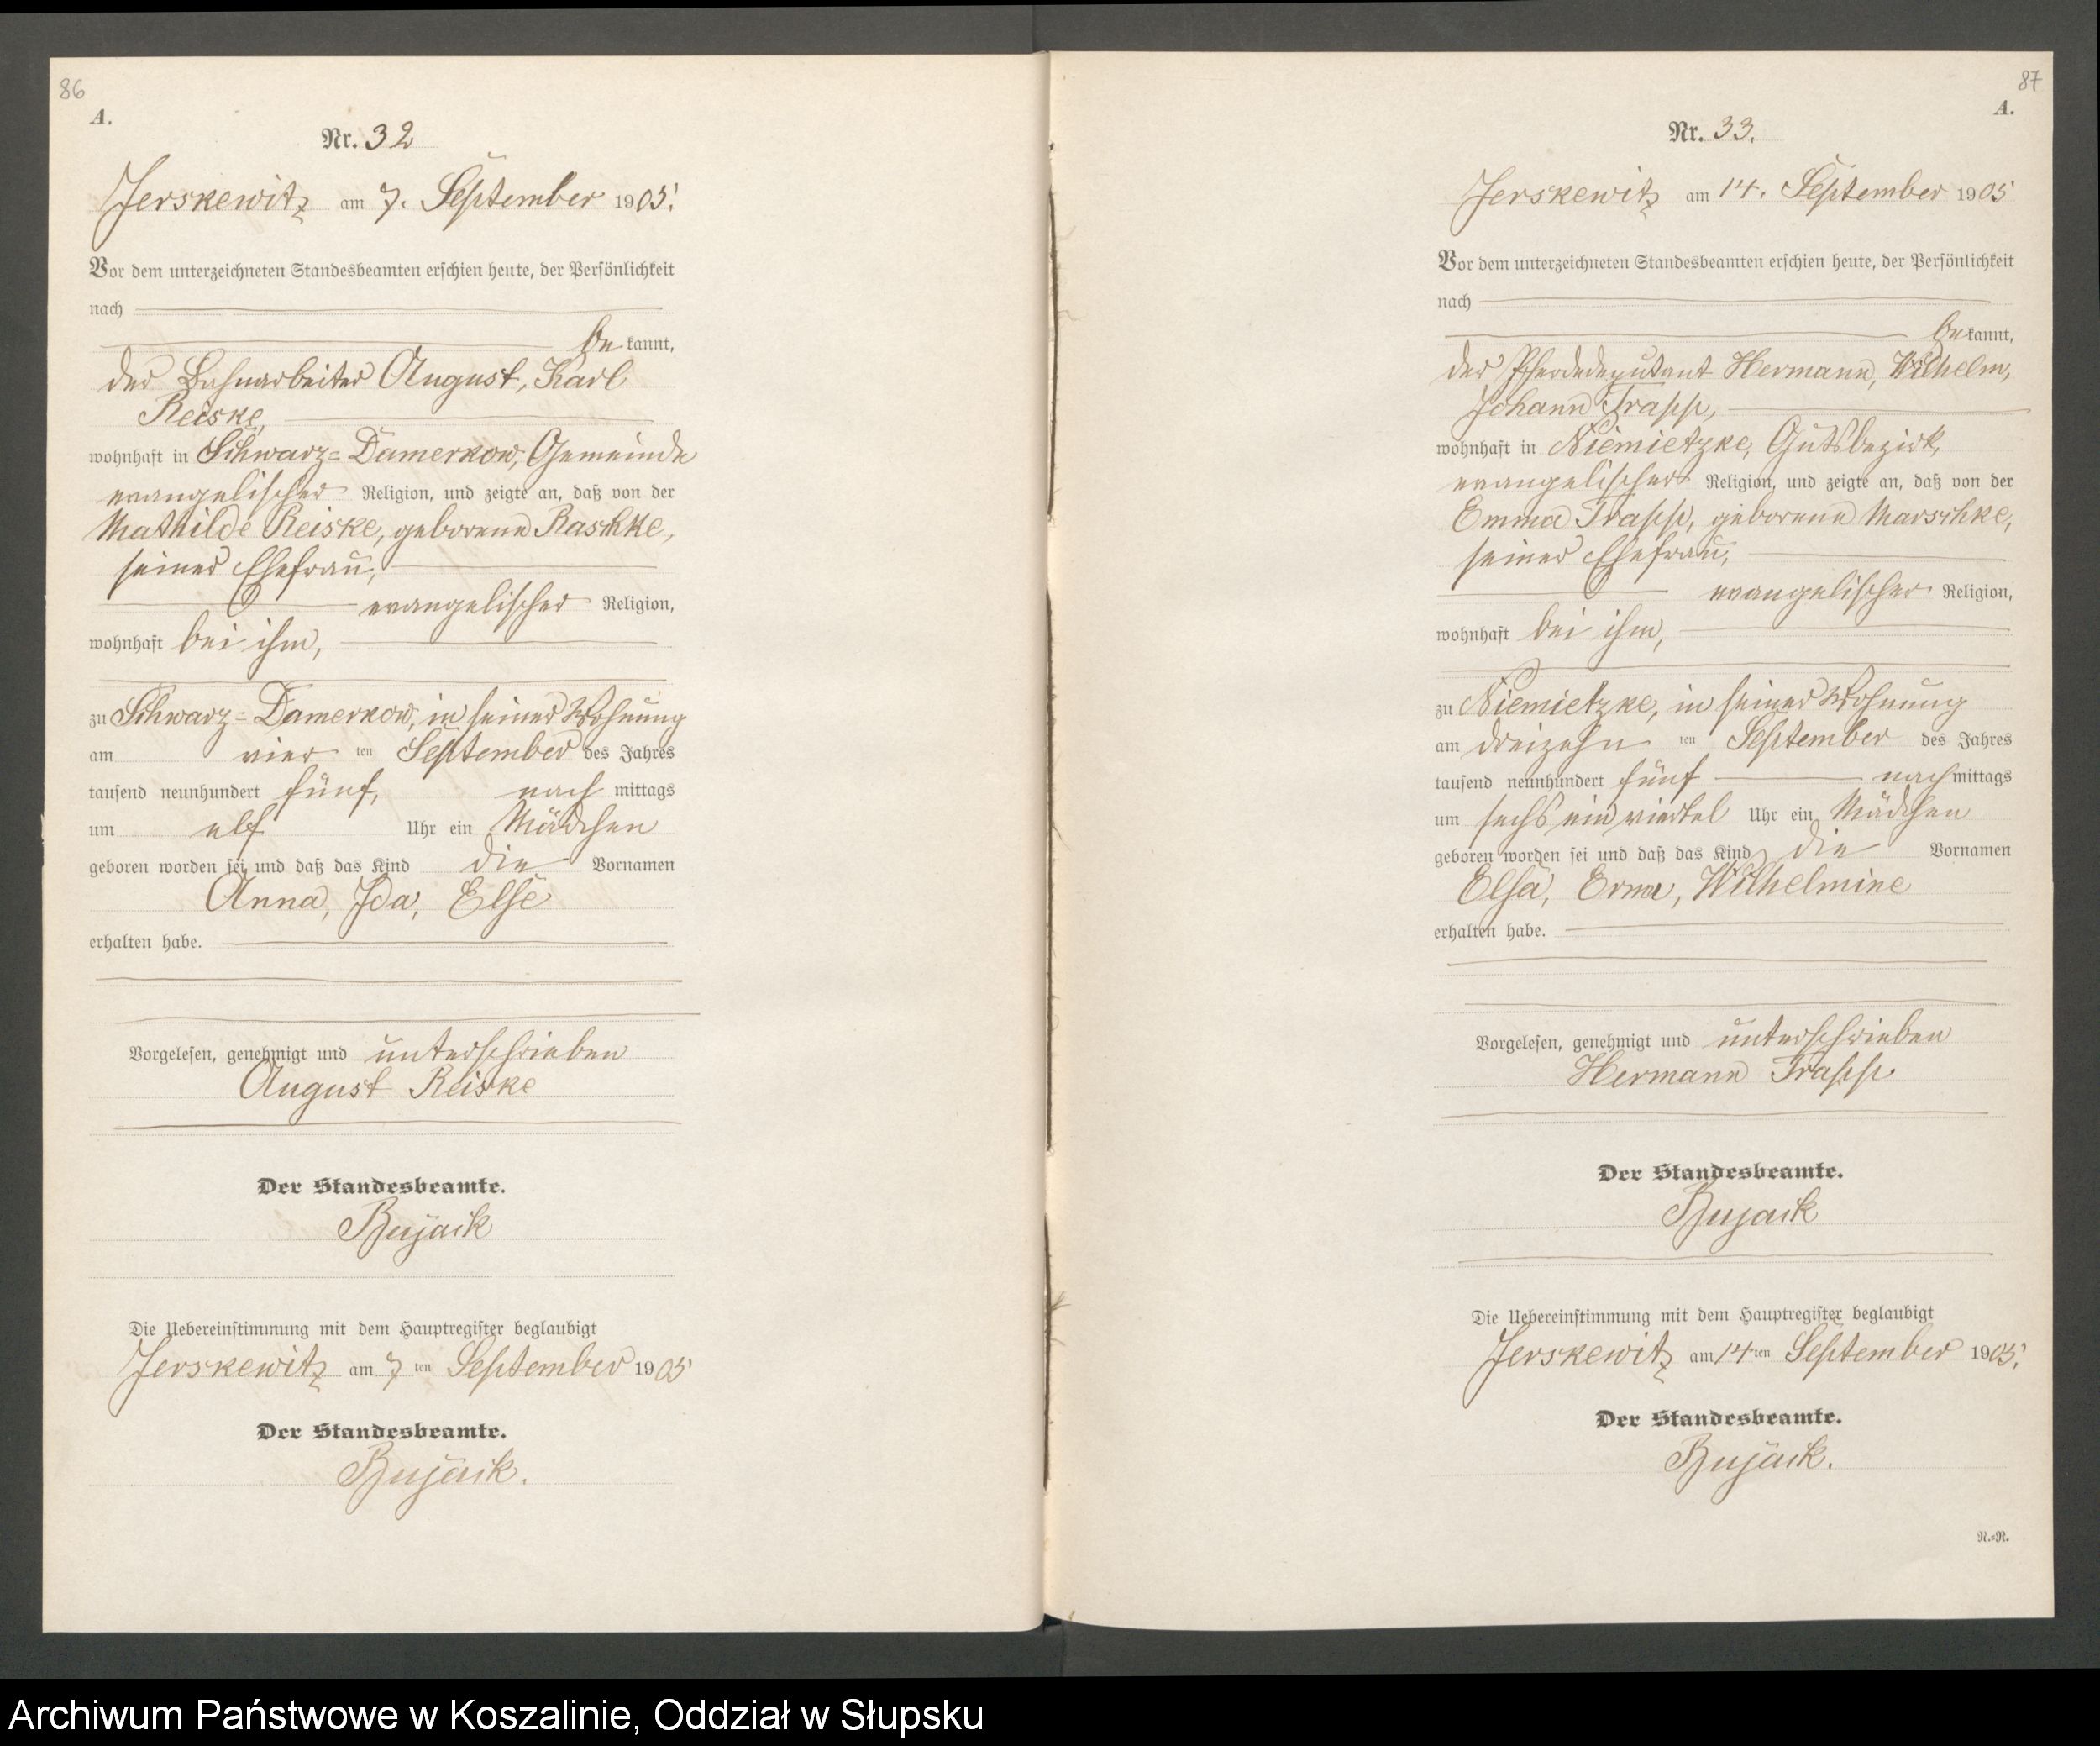 86
A.
Nr. 32
Jerskewitz am 7. September 1905.
Vor dem unterzeichneten Standesbeamten erschien heute, der Persönlichkeit
nach
be kannt,
der Bahnarbeiter August, Karl
Reiske,
wohnhaft in Schwarz=Damerkow, Gemeinde
evangelischer Religion, und zeigte an, daß von der
Mathilde Reiske, geborene Raschke,
seiner Ehefrau,
evangelischer Religion,
wohnhaft bei ihm,
zu Schwarz=Damerkow, in seiner Wohnung
am vier ten September des Jahres
tausend neunhundert fünf, nach mittags
um elf Uhr ein Mädchen
geboren worden sei und daß das Kind die Vornamen
Anna, Ida, Else
erhalten habe.
Vorgelesen, genehmigt und unterschrieben
August Reiske
Der Standesbeamte.
Bujack
Die Uebereinstimmung mit dem Hauptregister beglaubigt
Jerskewitz am 7 ten September 1905
Der Standesbeamte.
Bujack.
87
A.
Nr. 33.
Jerskewitz am 14. September 1905
Vor dem unterzeichneten Standesbeamten erschien heute, der Persönlichkeit
nach
be kannt,
der Pferdedeputant Hermann, Wilhelm,
Johann Trapp,
wohnhaft in Niemietzke, Gutsbezirk,
evangelischer Religion, und zeigte an, daß von der
Emma Trapp, geborene Marschke,
seiner Ehefrau,
evangelischer Religion,
wohnhaft bei ihm,
zu Niemietzke, in seiner Wohnung
am dreizehn ten September des Jahres
tausend neunhundert fünf nach mittags
um sechs ein viertel Uhr ein Mädchen
geboren worden sei und daß das Kind die Vornamen
Elsa, Erna, Wilhelmine
erhalten habe.
Vorgelesen, genehmigt und unterschrieben
Hermann Trapp.
Der Standesbeamte.
Bujack
Die Uebereinstimmung mit dem Hauptregister beglaubigt
Jerskewitz am 14 ten September 1905.
Der Standesbeamte.
Bujack.
N.=R.
Archiwum Państwowe w Koszalinie, Oddział w Słupsku